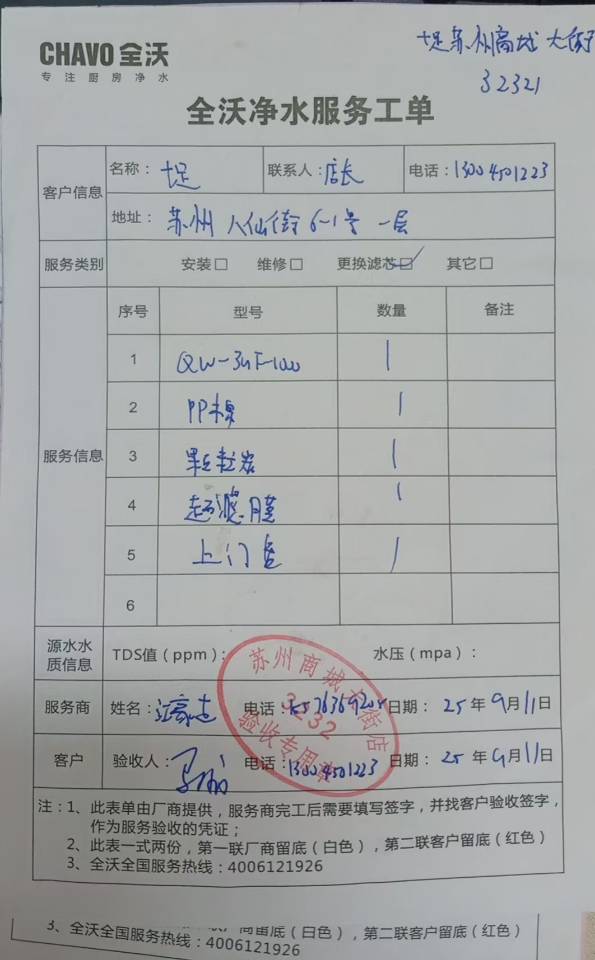 CHAVO 全沃
专注厨房净水
苏州商城大街
32321
全沃净水服务工单
客户信息 名称： 联系人：店长 电话：13004501223
地址：苏州 八仙街6-1号 一层
服务类别 安装□ 维修□ 更换滤芯☑ 其它□
服务信息 序号 型号 数量 备注
1 QW-3UF-1000 1
2 PP棉 1
3 颗粒炭 1
4 超滤膜 1
5 上门 1
6
源水水质信息 TDS值（ppm）： 水压（mpa）：
服务商 姓名： 电话： 日期：25年9月11日
客户 验收人： 电话：13004501223 日期：25年9月11日
苏州商城大街店
3232
验收专用章
注：1、此表单由厂商提供，服务商完工后需要填写签字，并找客户验收签字，
作为服务验收的凭证；
2、此表一式两份，第一联厂商留底（白色），第二联客户留底（红色）
3、全沃全国服务热线：4006121926
商留底（白色），第二联客户留底（红色）
3、全沃全国服务热线：4006121926